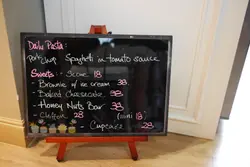 Daily Pasta:
Pork chop Spaghetti in tomato sauce
Sweets:- Scone 18
- Brownie w/ ice cream 38
- Baked Cheesecake 38
- Honey Nuts Bar 38
- Chiffon 28 (mini 18)
- Cupcake 28